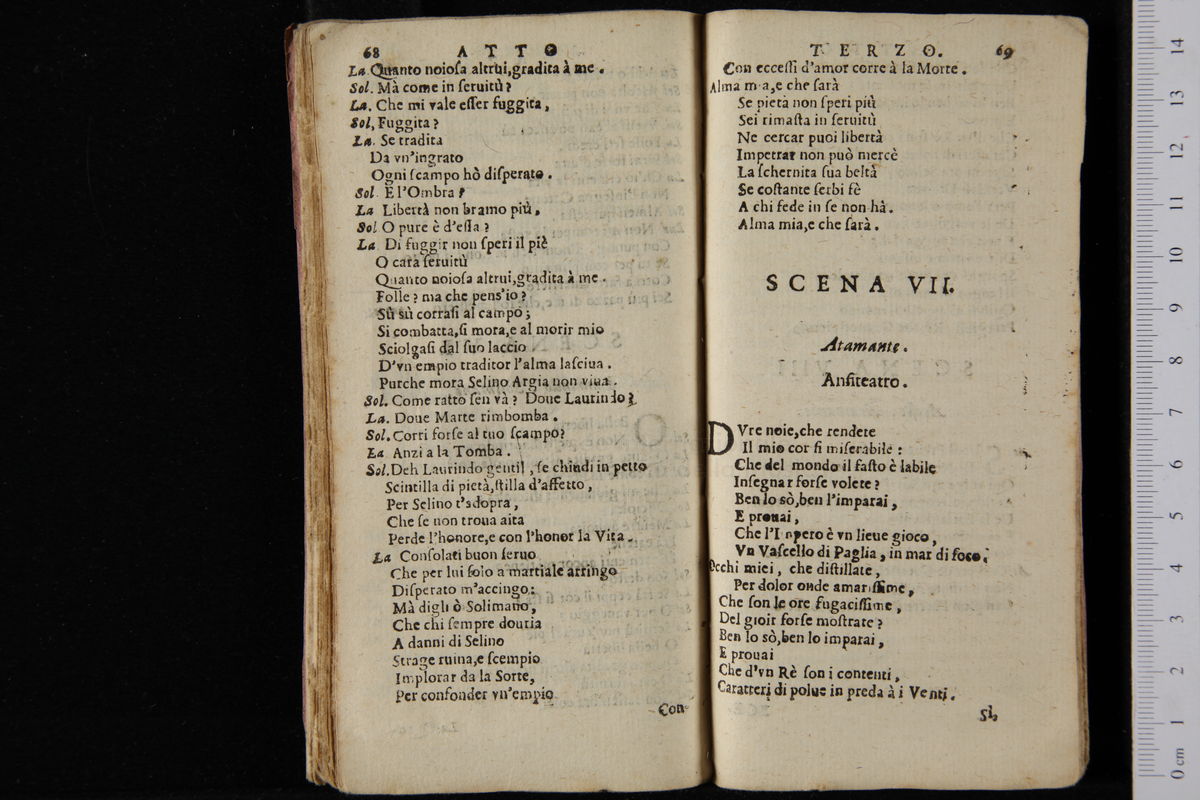 68 ATTO
La Quanto noiosa altrui,gradita à me .
Sol. Mà come in seruitù?
La. Che mi vale esser fuggita ,
Sol, Fuggita ?
La. Se tradita
Da vn'ingrato
Ogni scampo hò disperato .
Sol. E l'Ombra ?
La Libertà non bramo più,
Sol O pure è d'essa ?
La Di fuggir non speri il piè
O cara seruitù
Quanto noiosa altrui,gradita à me .
Folle ? ma che pens'io ?
Sù sù corrasi al campo ;
Si combatta,si mora,e al morir mio
Sciolgasi dal suo laccio
D'vn empio traditor l'alma lasciua .
Purche mora Selino Argia non viua .
Sol. Come ratto sen và ? Doue Laurindo ?
La. Doue Marte rimbomba .
Sol. Corri forse al tuo scampo?
La Anzi a la Tomba .
Sol. Deh Laurindo gentil , se chiudi in petto
Scintilla di pietà,stilla d'affetto ,
Per Selino t'adopra ,
Che se non troua aita
Perde l'honore,e con l'honor la Vita .
La Consolati buon seruo
Che per lui solo a martiale arringo
Disperato m'accingo:
Mà digli ò Solimano,
Che chi sempre douria
A danni di Selino
Strage ruina,e scempio
Implorar da la Sorte,
Per confonder vn'empio
Con-
TERZO. 69
Con eccessi d'amor corre à la Morte .
Alma mia,e che sarà
Se pietà non speri più
Sei rimasta in seruitù
Ne cercar puoi libertà
Impetrar non può mercè
La schernita sua beltà
Se costante serbi fè
A chi fede in se non hà .
Alma mia,e che sarà .
SCENA VII.
Atamante .
Anfiteatro .
DVre noie,che rendete
Il mio cor sì miserabile :
Che del mondo il fasto è labile
Insegnar forse volete ?
Ben lo sò,ben l'imparai ,
E prouai ,
Che l'Impero è vn lieue gioco ,
Vn Vascello di Paglia , in mar di foco.
Occhi miei , che distillate ,
Per dolor onde amarissime ,
Che son le ore fugacissime ,
Del gioir forse mostrate ?
Ben lo sò,ben lo imparai ,
E prouai
Che d'vn Rè son i contenti ,
Caratteri di polue in preda à i Venti .
Sì,
0 cm 1 2 3 4 5 6 7 8 9 10 11 12 13 14